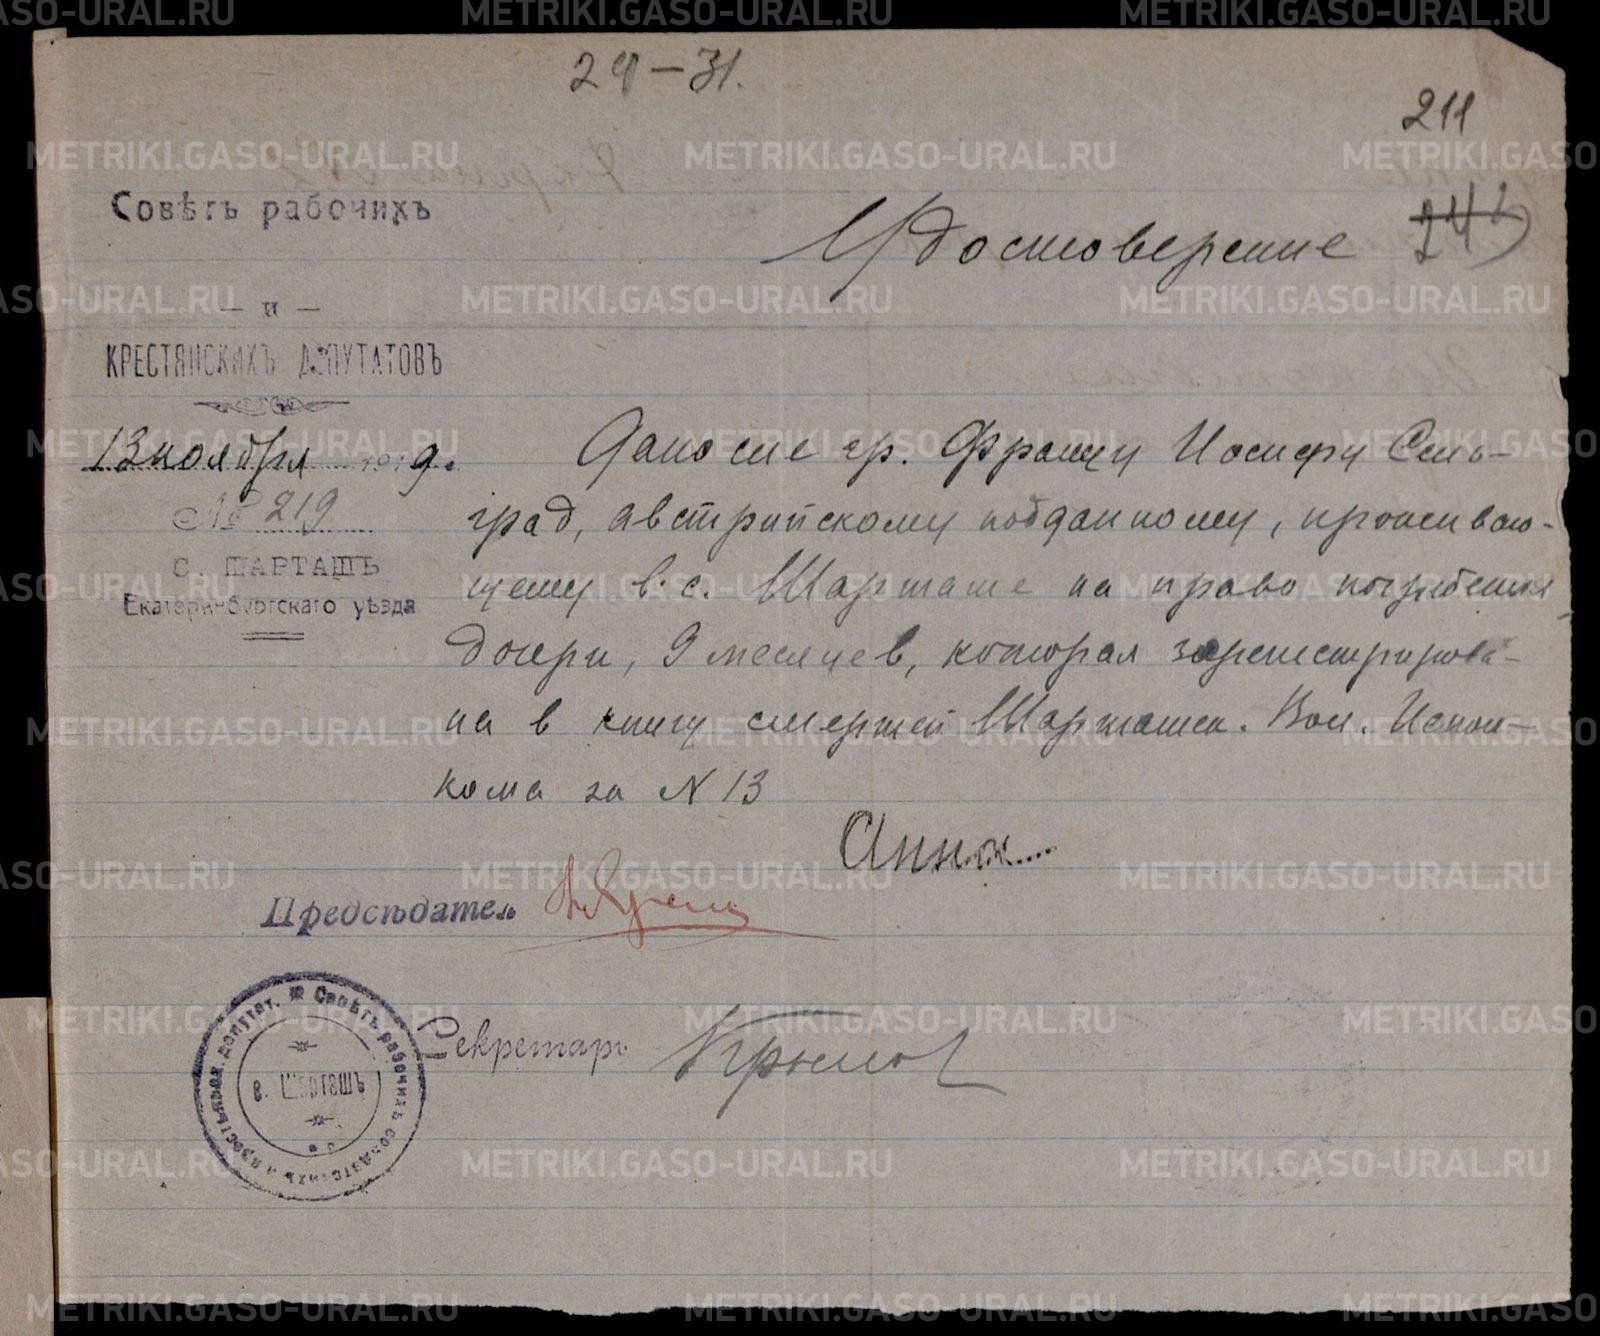 29-31.
211
241
Совѣтъ рабочихъ
— и —
КРЕСТЯНСКИХЪ ДЕПУТАТОВЪ
13 ноября 1919.
№ 219
С. ШАРТАШЪ
Екатеринбургскаго уѣзда
Удостоверение
Дано сие гр. Францу Иосифу Сень-
град, австрийскому подданному, прожива­ю-
щему в с. Шарташе на право погребения
дочери, 9 месяцев, которая зарегистрирова-
на в книгу смертей Шарташск. Вол. Испол-
кома за N 13
Анна
Предсѣдатель
Секретарь Крылов
Совѣтъ рабочихъ солдатскихъ и крестьянск. депутат.
в. Шарташъ
METRIKI.GASO-URAL.RU